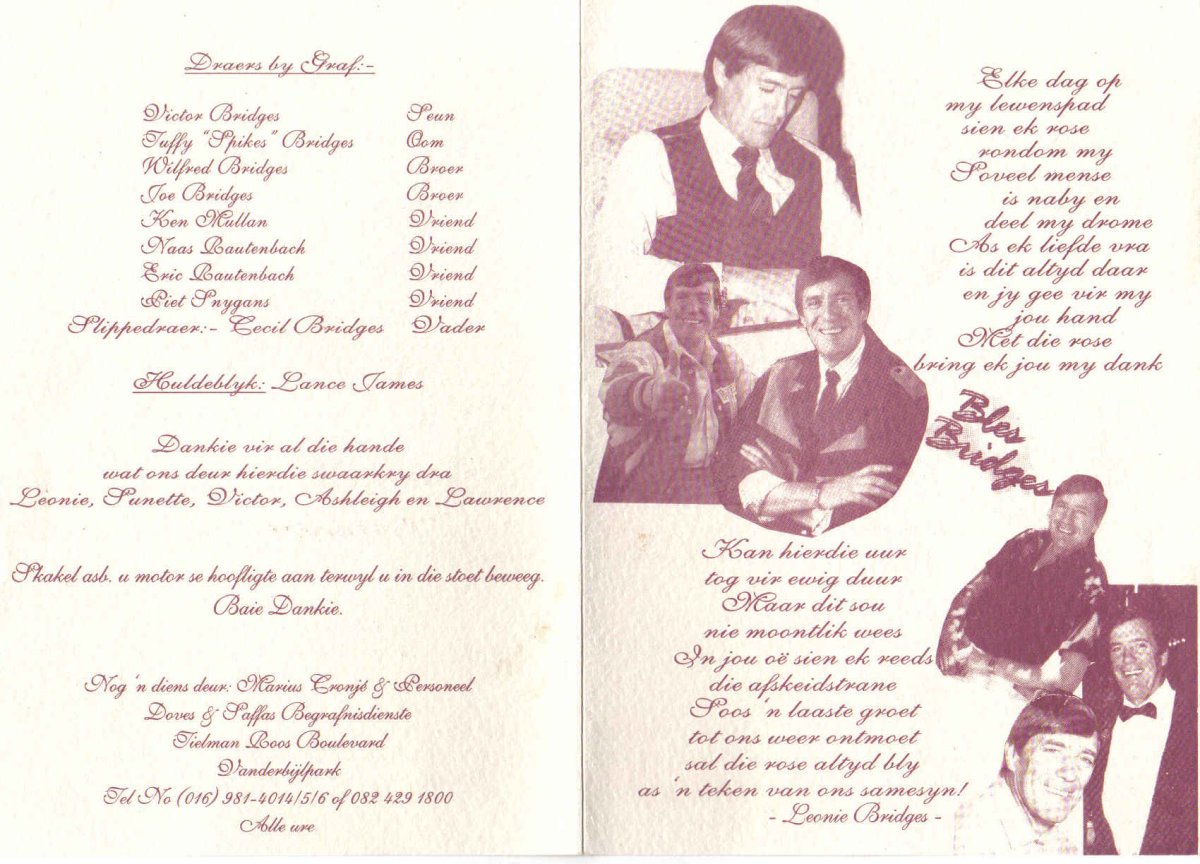 Draers by Graf:-
Victor Bridges Seun
Tuffy "Spikes" Bridges Oom
Wilfred Bridges Broer
Joe Bridges Broer
Ken Mullan Vriend
Naas Rautenbach Vriend
Eric Rautenbach Vriend
Piet Snygans Vriend
Slippedraer:- Cecil Bridges Vader
Huldeblyk: Lance James
Dankie vir al die hande
wat ons deur hierdie swaarkry dra
Leonie, Sunette, Victor, Ashleigh en Lawrence
Skakel asb. u motor se hoofligte aan terwyl u in die stoet beweeg.
Baie Dankie.
Nog 'n diens deur: Marius Cronjé & Personeel
Doves & Saffas Begrafnisdienste
Tielman Roos Boulevard
Vanderbijlpark
Tel No (016) 981-4014/5/6 of 082 429 1800
Alle ure
Elke dag op
my lewenspad
sien ek rose
rondom my
Soveel mense
is naby en
deel my drome
As ek liefde vra
is dit altyd daar
en jy gee vir my
jou hand
Met die rose
bring ek jou my dank
Bles
Bridges
Kan hierdie uur
tog vir ewig duur
Maar dit sou
nie moontlik wees
In jou oë sien ek reeds
die afskeidstrane
Soos 'n laaste groet
tot ons weer ontmoet
sal die rose altyd bly
as 'n teken van ons samesyn!
- Leonie Bridges -